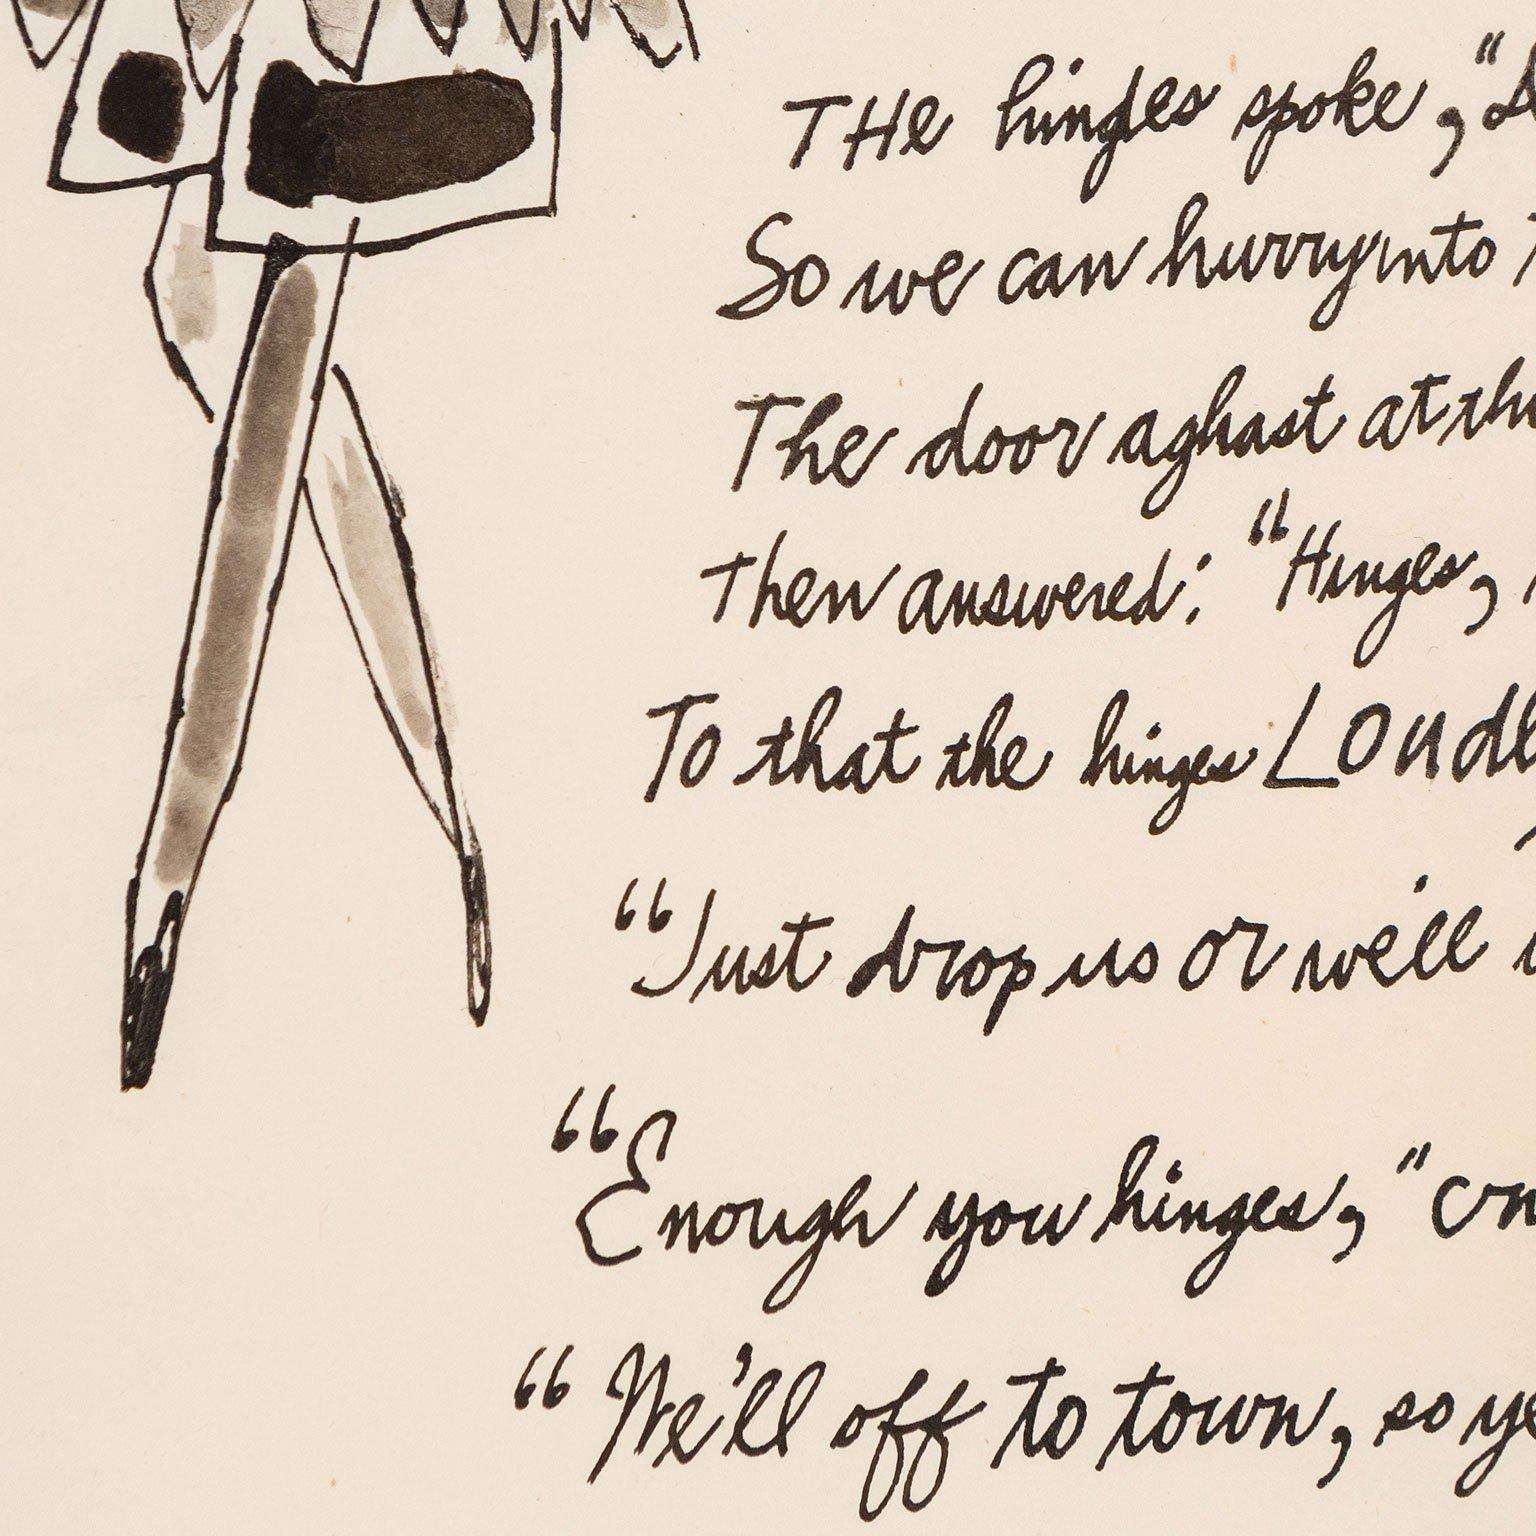 THe hinges spoke, "
So we can hurry into
The door aghast at
Then answered: "Hinges,
To that the hinges LOUdl
"Just drop us or we'll
"Enough you hinges,"
"We'll off to town, so